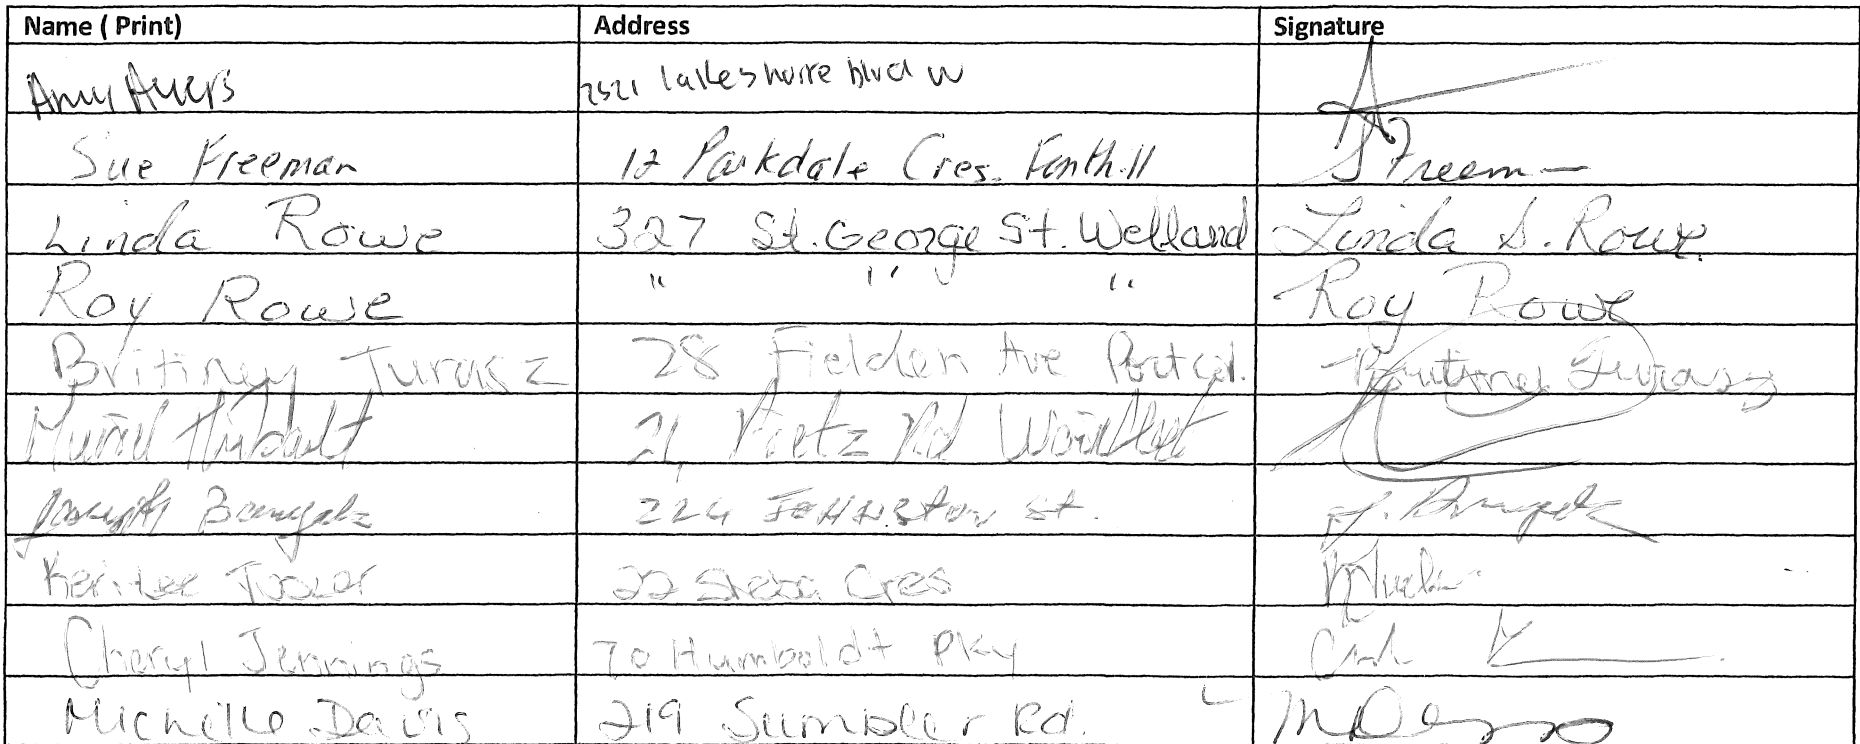 Name ( Print) Address Signature
Amy Ayers 2521 lakeshorre blvd W
Sue Freeman 12 Parkdale Cres. Fonthill S Freem
Linda Rowe 327 St. George St. Welland Linda S. Rowe
Roy Rowe " " " Roy Rowe
Britiney Turasz 28 Fielden Ave Portcol. Britiney Turasz
21, Rd
Joseph 224 Johnston st. J.
Keri-Lee 22 Cres
Cheryl Jennings 70 Humboldt PKy
Michelle Davis 219 Sumbler Rd.